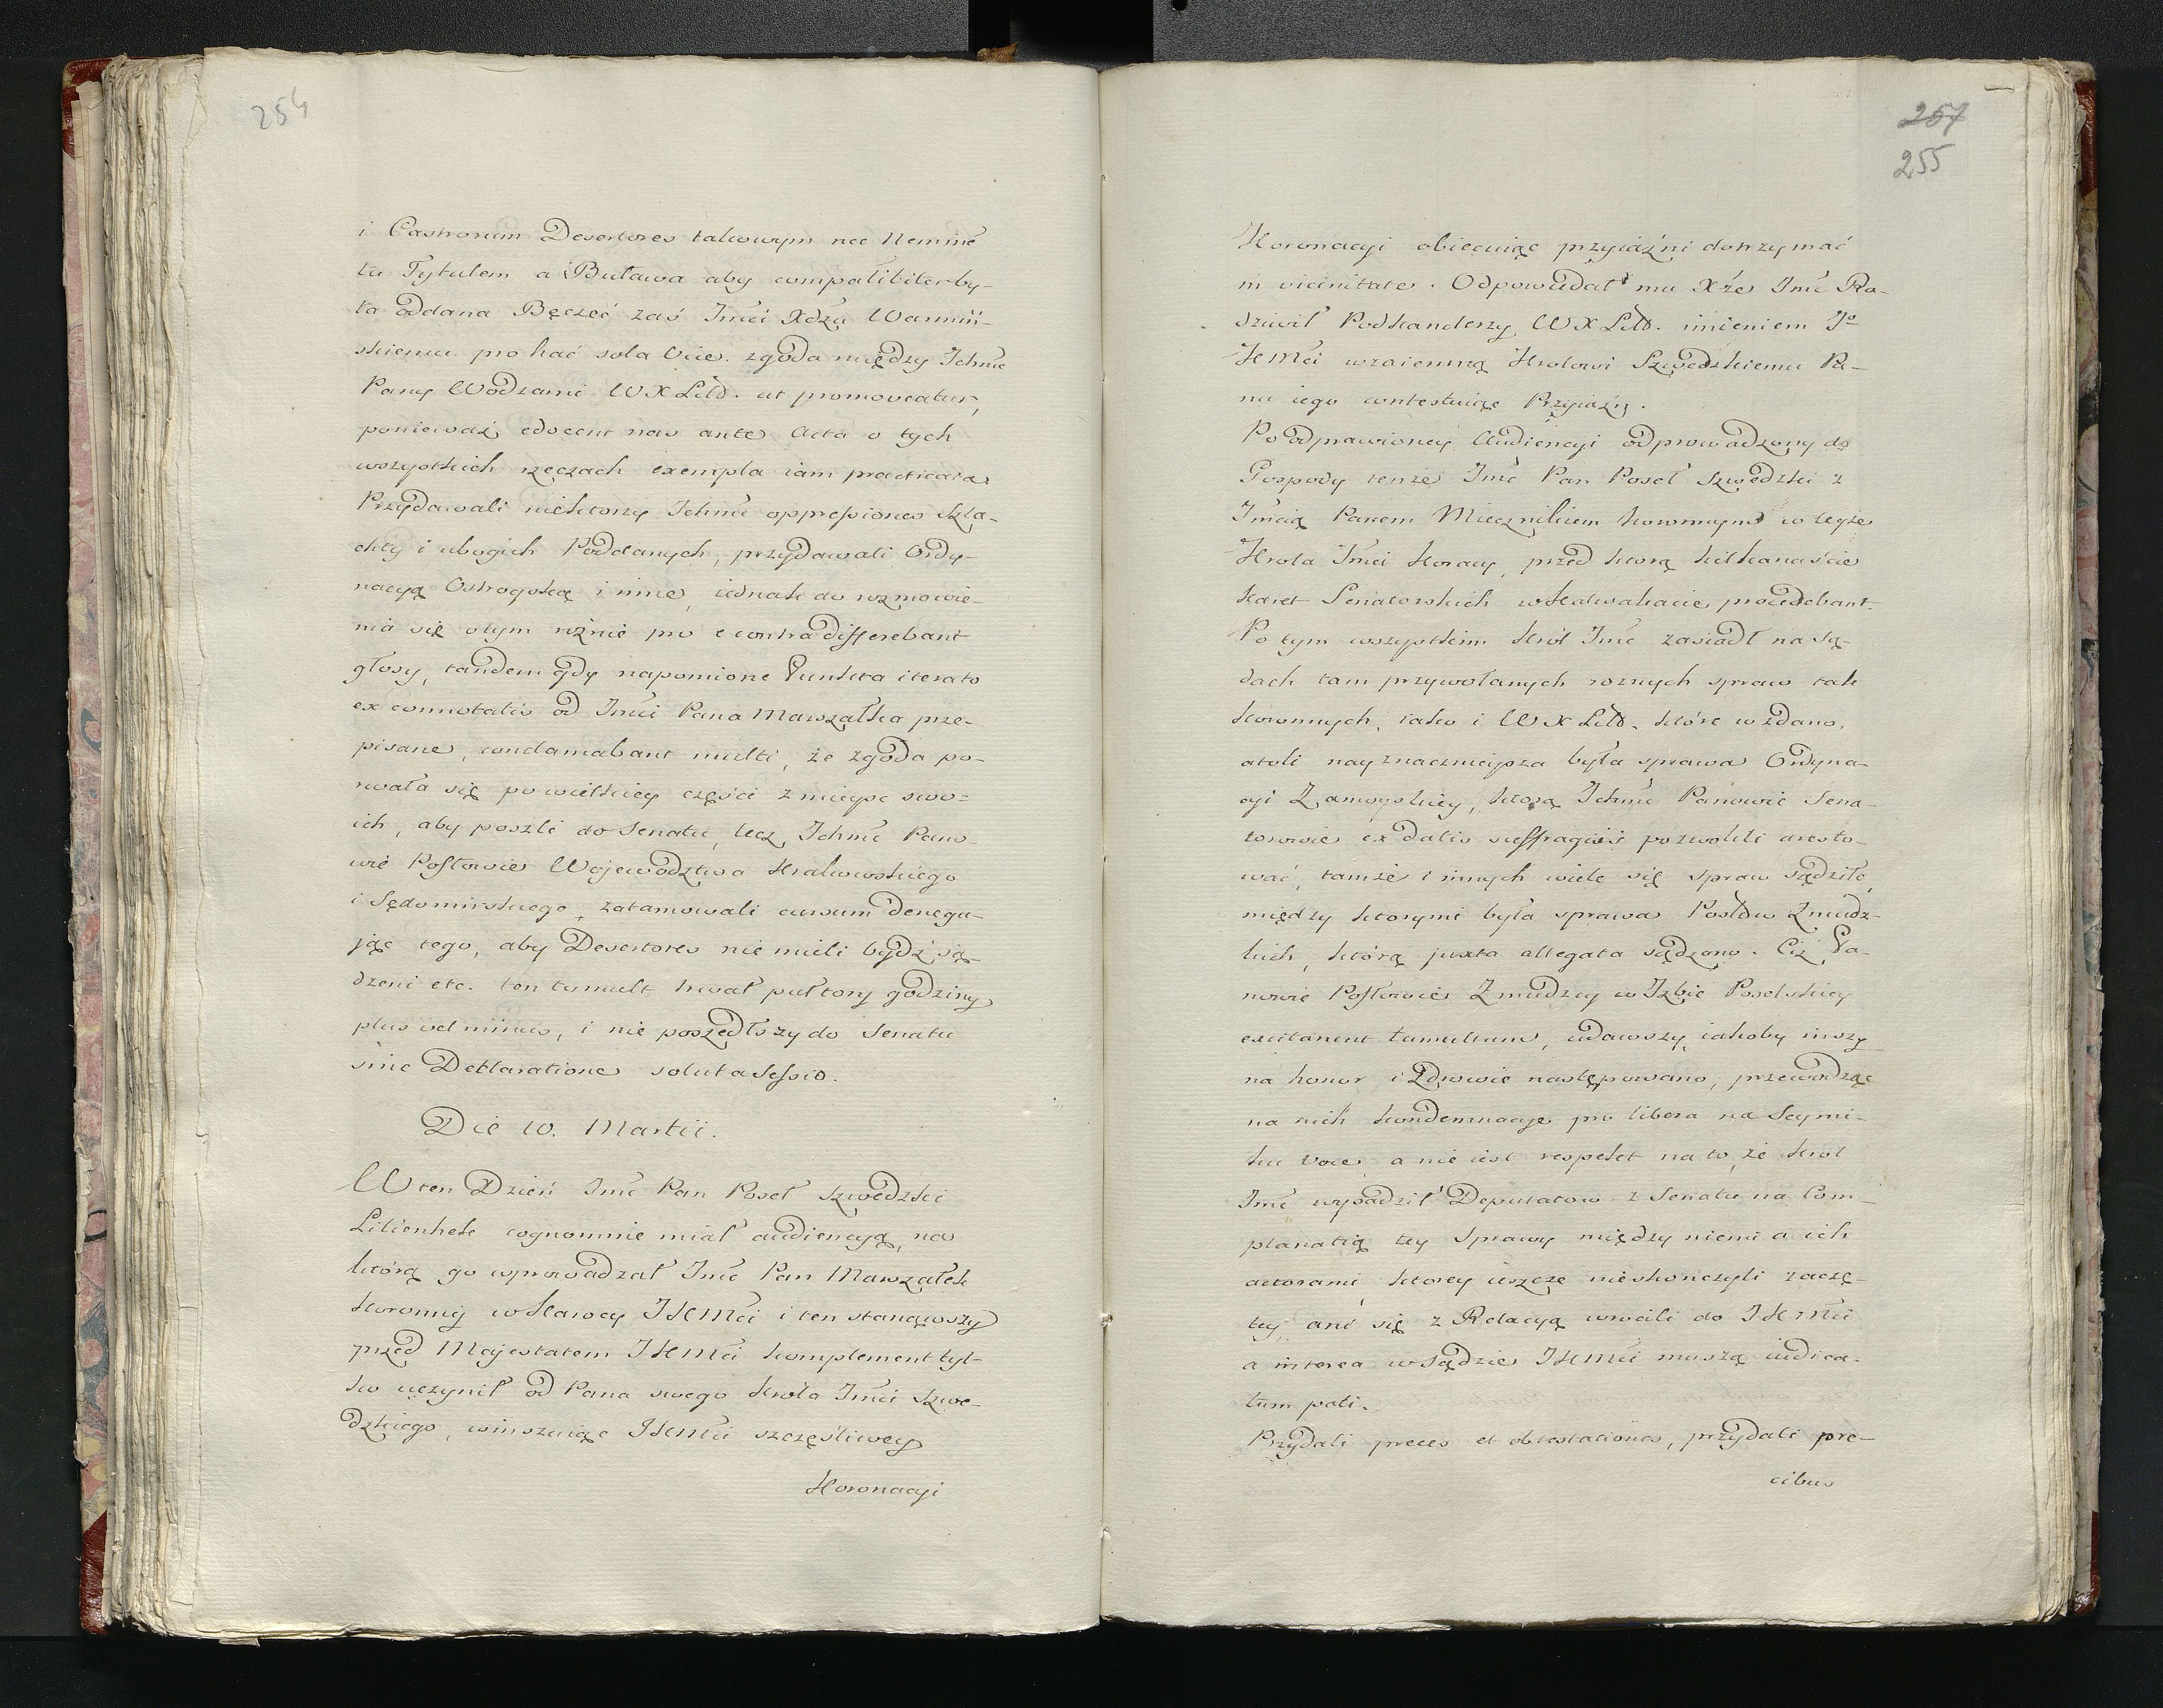 254
i Castrorum Desertores takowym nec Nemine
tu Tytulem a Buława aby compatibiliter by-
ła oddana Pieczęć zaś Jmći Xdzu Warmiń-
skiemu pro hac sola vice. zgoda między Ichmć
Pany Wodzami WXLitt. ut promoveatur,
ponieważ edocent nos ante Acta o tych
wszystkich rzeczach exempla iam practicata.
Przydawali niektorzy Ichmć oppressiones Szla-
chty i ubogich Poddanych, przydawali Ordy-
nacyą Ostrogską i inne, iednak do rozmowie-
nia się otym rożnie pro e contra differebant
głosy, tandem gdy napomione Punkta iterato
ex connotatis od Jmći Pana Marszałka prze-
pisane, conclamabant multi, że zgoda po-
rwała się po wielkiey części z mieysc swo-
ich, aby poszli do Senatu, lecz Ichmć Pano-
wie Posłowie Wojewodztwa Krakowskiego
i Sędomirskiego, zatamowali cursum denegu-
jąc tego, aby Desertores nie mieli bydź są-
dzeni etc. ten tumult trwał pułtory godziny
plus vel minus, i nie poszedłszy do Senatu
sine Declaratione soluta Sessio.
Die 10. Martii.
W ten Dzień Jmć Pan Poseł Szwedzki
Lilienhek cognomnie miał audiencyą, na
którą go wprowadzał Jmć Pan Marszałek
Koronny w Karocy JKMći i ten stanąwszy
przed Majestatem JKMći komplement tyl-
ko uczynił od Pana swego Króla Jmći Szwe-
dzkiego, winszuiąc JKMći szczęśliwey
Koronacyi
257
255
Koronacyi obiecuiąc przyiaźni dotrzymać
in vicinitate. Odpowiedał mu Xże Jmć Ra-
dziwił Podkanclerzy WXLitt. imieniem Jo
KMći wzaiemną Krolowi Szwedzkiemu Pa-
nu iego contestuiąc Przyiaźń.
Po odprawioney Audiencyi odprowadzony do
Gospody tenże Jmć Pan Poseł Szwedzki z
Jmcią Panem Miecznikiem koronnym w teyże
Krola Jmći Koracy, przed ktorą kilkanaście
Karet Senatorskich w Kalwakacie procedebant.
Po tym wszystkim Król Jmć zasiadł na Są-
dach tam przywołanych roznych spraw tak
koronnych, iako i WXLitt. które wzdano,
atoli nayznacznieysza była sprawa Ordyna-
cyi Zamoyskiey, ktorą Ichmć Panowie Sena-
torowie ex datis suffragiis pozwolili aresto-
wać, tamże i innych wiele się spraw sądziło,
między ktorymi była sprawa Posłów Zmudz-
kich, którą juxta allegata sądzono. Ciż Pa-
nowie Posłowie Zmudzcy w Izbie Poselskiey
excitarunt tumultum, udawszy, iakoby inszy
na honor i Zdrowie następowano, przewodząc
na nich kondemnacye pro libera na Seymi-
ku voce, a nie iest respekt na to, że Krol
Jmć wysadził Deputatow z Senatu na Com-
planatią tey Sprawy między niemi a ich
actorami, ktorzy ieszcze nieskonczyli zaczę-
tey, ani się z Relacyą wrócili do JKMći
a interea w Sądzie JKMći muszą iudica-
tum pati.
Przydali preces et obtestationes, przydali pre-
cibus